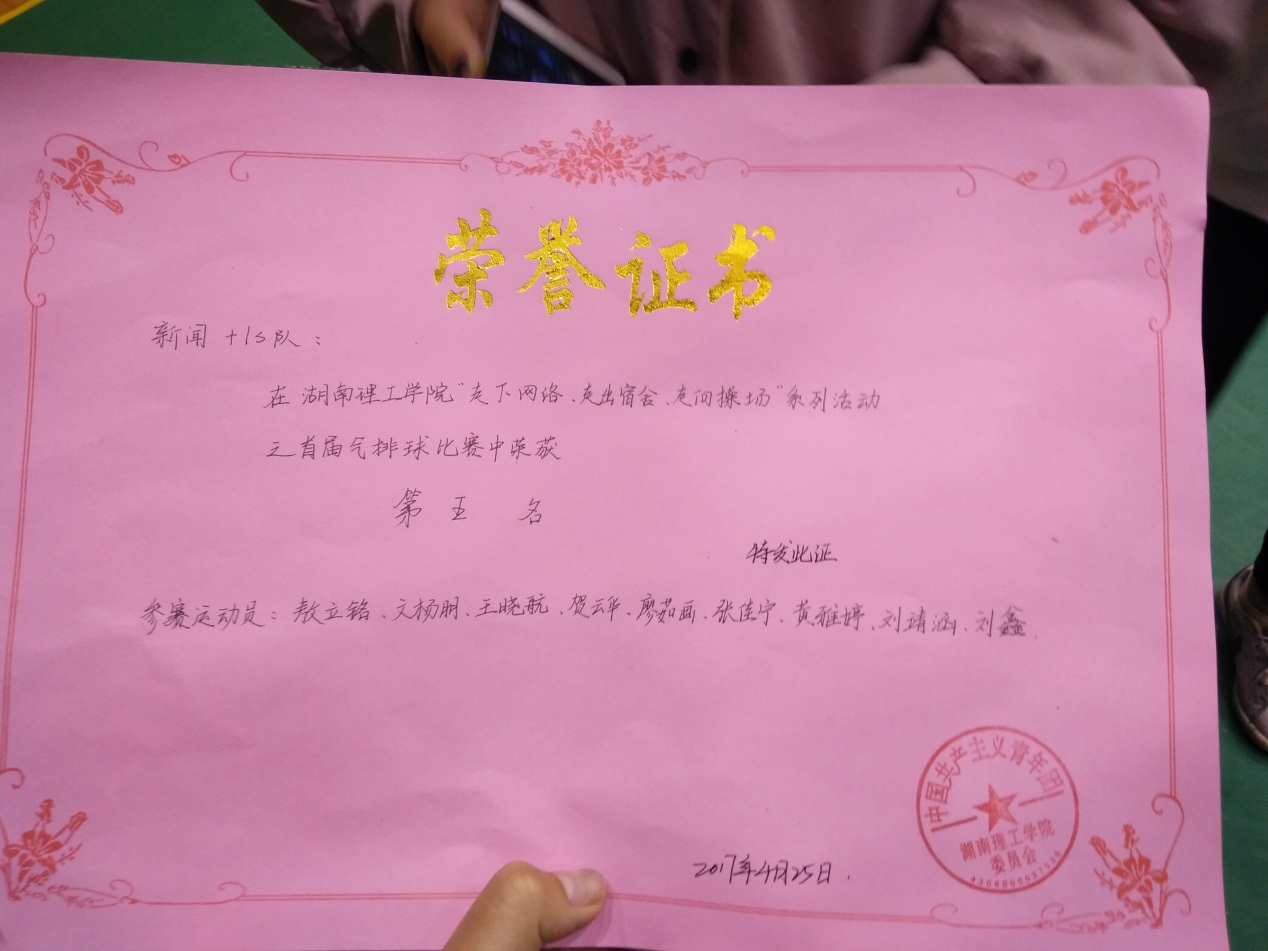 荣誉证书
新闻+1s队：
在湖南理工学院“走下网络、走出宿舍、走向操场”系列活动
之首届气排球比赛中荣获
第五名
特发此证
参赛运动员：敖立铭、文杨明、王晓航、贺云华、廖茹画、张佳宁、黄雅婷、刘靖涵、刘鑫.
中国共产主义青年团
湖南理工学院
委员会
2017年4月25日.